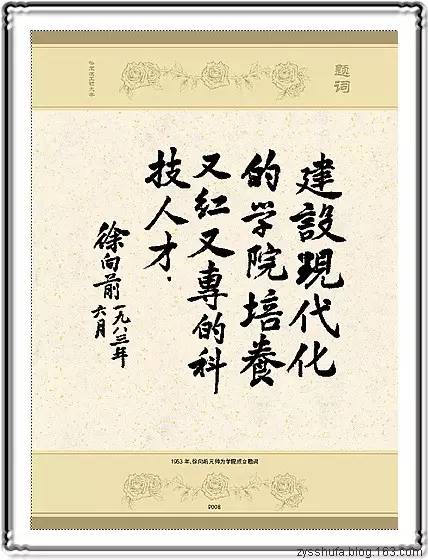 题词
建設現代化
的学院培養
又红又專的科
技人才．
徐向前
一九八三年
六月
1953 年,徐向前元帅为学院成立题词
P008
zysshufa.blog.163.com